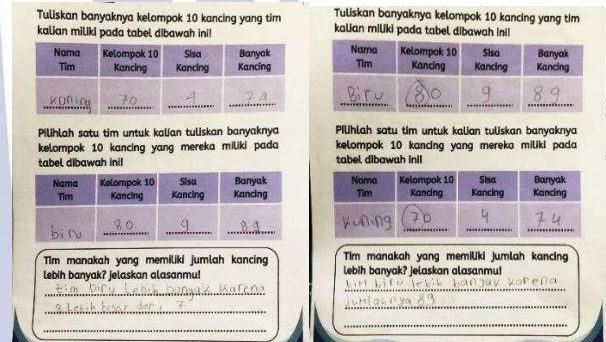 Tuliskan banyaknya kelompok 10 kancing yang tim
kalian miliki pada tabel dibawah ini!
Nama Tim Kelompok 10 Kancing Sisa Kancing Banyak Kancing
kuning 70 4 74
Pilihlah satu tim untuk kalian tuliskan banyaknya
kelompok 10 kancing yang mereka miliki pada
tabel dibawah ini!
Nama Tim Kelompok 10 Kancing Sisa Kancing Banyak Kancing
biru 80 9 89
Tim manakah yang memiliki jumlah kancing
lebih banyak? jelaskan alasanmu!
tim biru lebih bangak karena
8 lebih besar dari 7
Tuliskan banyaknya kelompok 10 kancing yang tim
kalian miliki pada tabel dibawah ini!
Nama Tim Kelompok 10 Kancing Sisa Kancing Banyak Kancing
Biru 80 9 89
Pilihlah satu tim untuk kalian tuliskan banyaknya
kelompok 10 kancing yang mereka miliki pada
tabel dibawah ini!
Nama Tim Kelompok 10 Kancing Sisa Kancing Banyak Kancing
kuning 70 4 74
Tim manakah yang memiliki jumlah kancing
lebih banyak? jelaskan alasanmu!
tim biru lebih banyak karena
jumlahnya 89